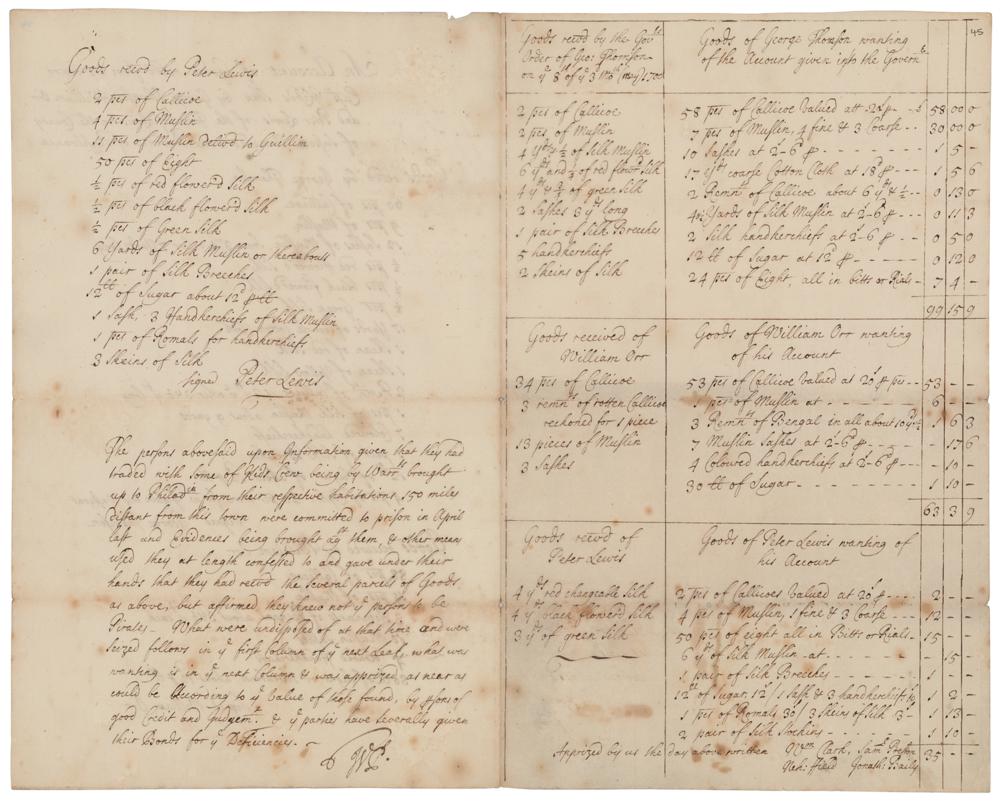 Goods recvd by Peter Lewis
2 pes of Callicoe
4 pes. of Muslin
11 pes of Muslin delivd to Guillim
50 pes of Eight
½ pes of red flower'd Silk
½ pes of black flower'd Silk
½ pes of Green Silk
6 Yards of Silk Muslin or thereabouts
1 pair of Silk Breeches
12 tt of Sugar about 12d ꝑ tt
1 Sash, 3 Handkerchiefs of Silk Muslin
1 pes of Romals for handkerchiefs
3 Skeins of Silk
Signed Peter Lewis
The persons abovesaid upon Information given that they had
traded with some of Kids Crew being by Warrts brought
up to Philadia from their respective habitations 150 miles
distant from this town were committed to prison in April
last and Evidences being brought agt them, & other means
used they at length confessed to and gave under their
hands that they had recvd the several parcels of Goods
as above, but affirmed they knew not ye persons to be
Pirates – What were undisposed of at that time and were
seized follows in ye first Column of ye next Leaf, what was
wanting is in ye next Column & was apprized as near as
could be According to ye Value of those found, by ꝑsons of
good Credit and Judgemt. & ye parties have severally given
their Bonds for ye Deficiencies. –
WP.
45
Goods recvd by the Govrs
Order of Geo: Thomson
on ye 8th of ye 3d Mth (may) 1700
2 pes of Callicoe
2 pes of Muslin
4 yds ½ of Silk Muslin
6 yds and ½ of red flowrd Silk
4 yds & ¾ of green Silk
2 Sashes 3 yds long
1 pair of Silk Breeches
5 handkerchiefs
2 Skeins of Silk
Goods of George Thomson wanting
of the Account given into the Governr
58 pes of Callicoe Valued att 20s ꝑ - - 58 00 0
7 pes of Muslin, 4 fine & 3 Coarse - - 30 00 0
10 Sashes at 2-6 ꝑ - - - 1 5 -
17 yds coarse Cotton Cloth at 18d ꝑ - - 1 5 6
2 Remnts of Callicoe about 6 yds & ½ - - 0 13 0
4½ Yards of Silk Muslin at 2-6 ꝑ - - - 0 11 3
2 Silk handkerchiefs at 2-6 ꝑ - - - 0 5 0
12 tt of Sugar at 12d ꝑ - - - 0 12 0
24 pes of Eight, all in bitts or Rials - 7 4 -
99 15 9
Goods received of
William Orr
34 pes of Callicoe
3 remnts of rotten Callicoe
reckoned for 1 piece
13 pieces of Muslin
3 Sashes
Goods of William Orr wanting
of his Account
53 pes of Callicoe Valued at 20s ꝑ pes - - 53 - -
1 pes of Muslin at - - - 6 - -
3 Remnts of Bengal in all about 10 yds ½ 1 6 3
7 Muslin Sashes at 2-6 ꝑ - - - - 17 6
4 Coloured handkerchiefs at 2-6 ꝑ - - - - 10 -
30 tt of Sugar - - - 1 10 -
63 3 9
Goods recvd of
Peter Lewis
4 yds red changeable Silk
4 yds black flower'd Silk
3 yds of green Silk
Goods of Peter Lewis wanting of
his Account
2 pes of Callicoes Valued at 20s ꝑ - - - 2 - -
4 pes of Muslin, 1 fine & 3 Coarse - - - 12 - -
50 pes of eight all in Bitts or Rials - 15 - -
6 yds of Silk Muslin at - - - - 15 -
1 pair of Silk Breeches - - - 1 - -
12 tt of Sugar, 12s / 1 Sash & 3 handkerchiefs 1 2 -
1 pes of Romals 30s / 3 Skeins of Silk 3s - 1 13 -
2 pair of Silk Stockins - - - 1 10 -
Apprized by us the day above written Wm Clark, Saml Preston 35 - -
Neh: Field Jonath: Baily